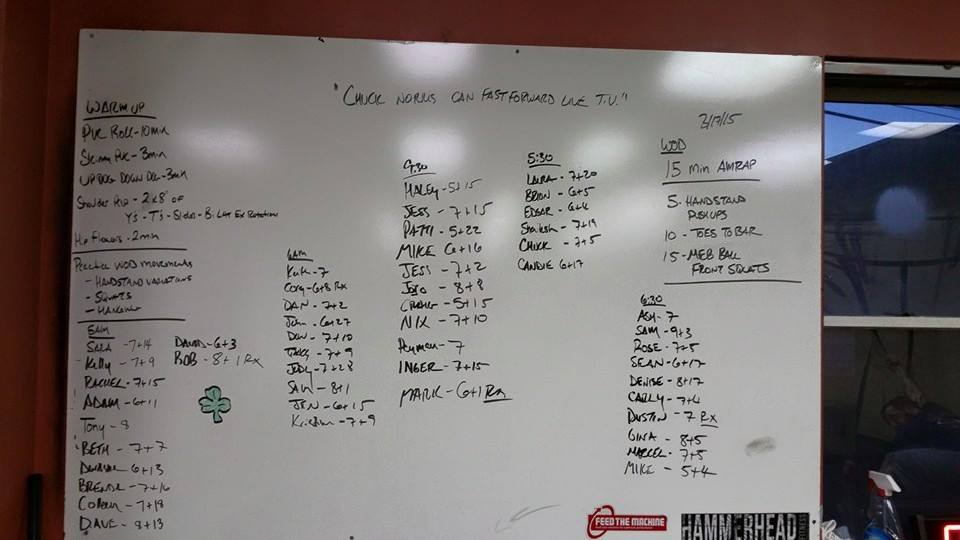 "CHUCK NORRIS CAN FAST FORWARD LIVE T.V."
3/17/15
WARM UP
PVC ROLL - 10 min
Skinny PVC - 3min
UP DOG DOWN DOG - 3min
Shoulder Rip - 2x8 of
Y's - T's - Slides - Bi. Lat Ex Rotation
Hip Flexors - 2min
Practice WOD movements
- HANDSTAND VARIATIONS
- SQUATS
- HANGING
5AM
SARA - 7+14
Kelly - 7+9
RACHEL - 7+15
ADAM - 6+11
Tony - 8
BETH - 7+7
6+13
BRENDA - 7+16
Colleen - 7+18
DAVE - 8+13
DAVID - 6+3
ROB - 8+1 Rx
6AM
- 7
Cory - 6+8 Rx
DAN - 7+2
John - 6+27
Dan - 7+10
- 7+9
JODY - 7+28
SAM - 8+1
JEN - 6+15
Kristin - 7+9
9:30
HALEY - 5+15
JESS - 7+15
PATTI - 5+22
MIKE 6+16
JESS - 7+2
JoJo - 8+8
- 5+15
NIX - 7+10
Hyman - 7
INGER - 7+15
MARK - 6+1 Rx
5:30
LAURA - 7+20
BRIAN - 6+5
EDGAR - 6+4
- 7+19
CHUCK - 7+5
CANDIE 6+17
WOD
15 min AMRAP
5 - HANDSTAND
PUSHUPS
10 - TOES TO BAR
15 - MED BALL
FRONT SQUATS
6:30
ASH - 7
SAM - 9+3
ROSE - 7+5
SEAN - 6+17
DENISE - 8+17
CARLY - 7+4
DUSTIN - 7 Rx
GINA - 8+5
MARCEL - 7+5
MIKE - 5+4
FEED THE MACHINE
HAMMERHEAD